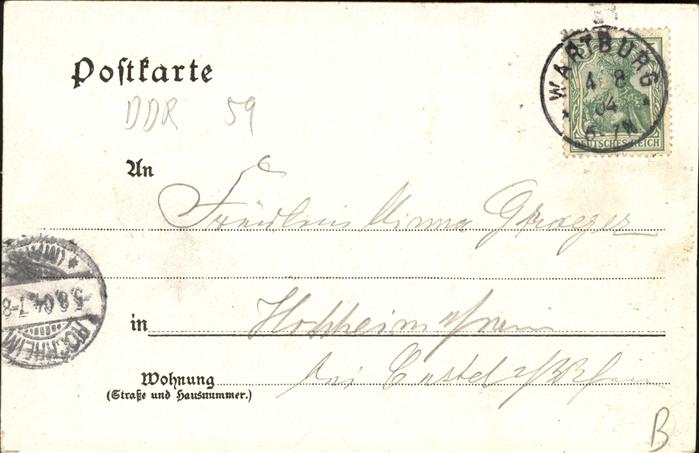 Postkarte
WARTBURG
4 8
04
6-7N
DEUTSCHES REICH
DDR 59
An
Fräulein Minna Graeger
5.8.04.7-8
in Hochheim
Wohnung bei Castel a/Rhein
(Straße und Hausnummer.)
B